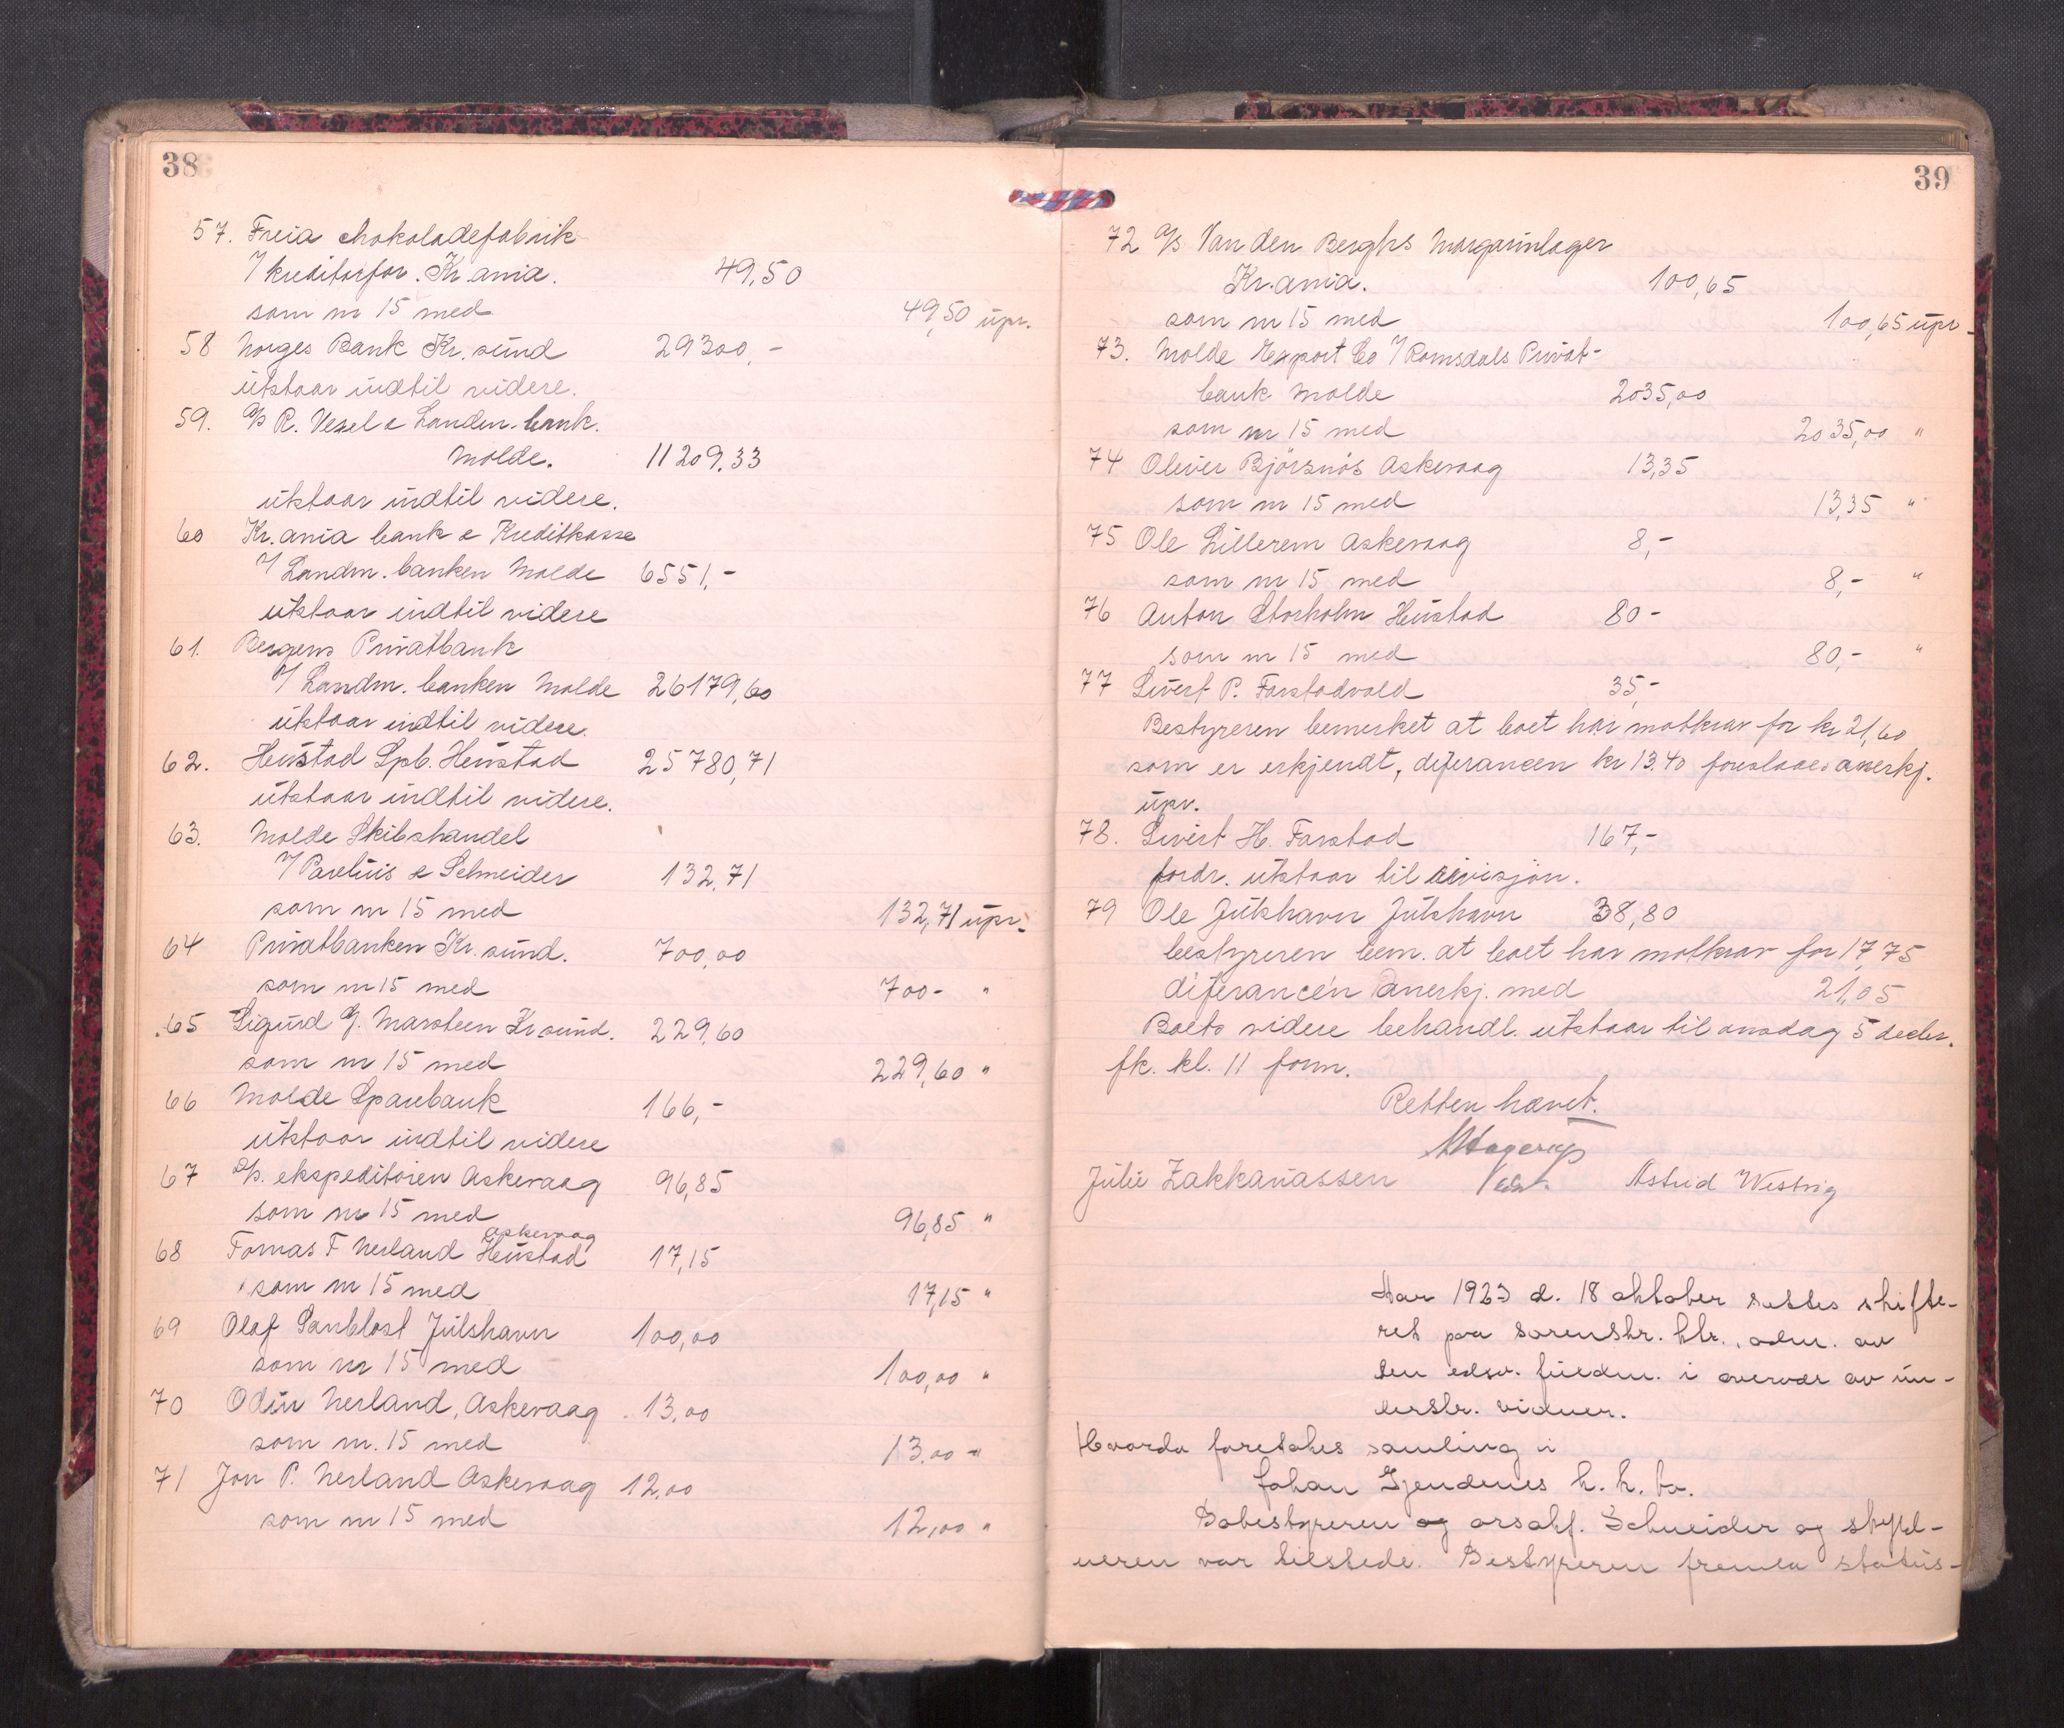 38
57. Freia chokoladefabrik
v/ kreditorfor. Kr.ania. 49,50
som nr 15 med 49,50 upr.
58 Norges Bank Kr.sund 29300,-
utstaar indtil videre.
59. A/s R. Vexel & Landm. bank.
Molde. 11209.33
utstaar indtil videre.
60 Kr.ania bank & Kreditkasse
v/ Landm. banken Molde 6551,-
utstaar indtil videre
61. Bergens Privatbank
v/ Landm. banken Molde 26179,60
utstaar indtil videre.
62. Hustad Spb. Hustad 25780,71
utstaar indtil videre.
63. Molde Skibshandel
v/ Pavelius & Schneider 132,71
som nr 15 med 132,71 upr.
64 Privatbanken Kr.sund. 700,00
som nr 15 med 700- "
65 Sigurd G. Marsteen Kr.sund. 229,60
som nr 15 med 229,60 "
66 Molde Sparebank 166,-
utstaar indtil videre
67 D/s. ekspeditöien Askevaag 96,85
som nr 15 med 96,85 "
askevaag
68 Tomas T Nerland Hustad 17,15
som nr 15 med 17,15 "
69 Olaf Sanblost Julshavn 100,00
som nr 15 med 100,00 "
70 Odin Nerland, Askevaag 13,00
som nr. 15 med 13.00 "
71 Jon P. Nerland Askevaag 12,00
som nr 15 med 12,00 "
39
72 A/s Van den Berghs Margarinlager
Kr.ania. 100,65
som nr 15 med 100,65 upr.
73. Molde Export Co v/ Romsdals Privat-
bank Molde 2035,00
som nr 15 med 2035,00 "
74 Oliver Björsnös Askevaag 13,35
som nr 15 med 13,35 "
75 Ole Lillerem Askevaag 8,-
som nr 15 med 8,- "
76 Anton Storholm Hustad 80-
som nr 15 med 80,- "
77 Sivert P. Farstadvold 35,-
Bestyreren bemerket at boet har motkrav for kr 21,60
som er erkjendt, diferancen kr 13.40 foreslaaes anerkj.
upr.
78. Sivert H. Farstad 167,-
fordr. utstaar til revisjon.
79 Ole Julshavn Julshavn 38,80
bestyreren bem. at boet har motkrav for 17,75
diferancén anerkj. med 21,05
Boets videre behandl. utstaar til onsdag 5 decbr.
fk. kl. 11 form.
Retten hævet.
Hagerup
Julie Zakkariassen Astrid Westvig
Aar 1923 d. 18 oktober sattes skifte-
ret paa sorenskr. ktr., adm. av
den edsv. fuldm. i overvær av un-
derskr. vidner.
Hvorda foretokes samling i
Johan Gjendenes k. k. bo.
Bobestyreren og orsakf. Schneider og skyld-
neren var tilstede. Bestyreren fremla status-